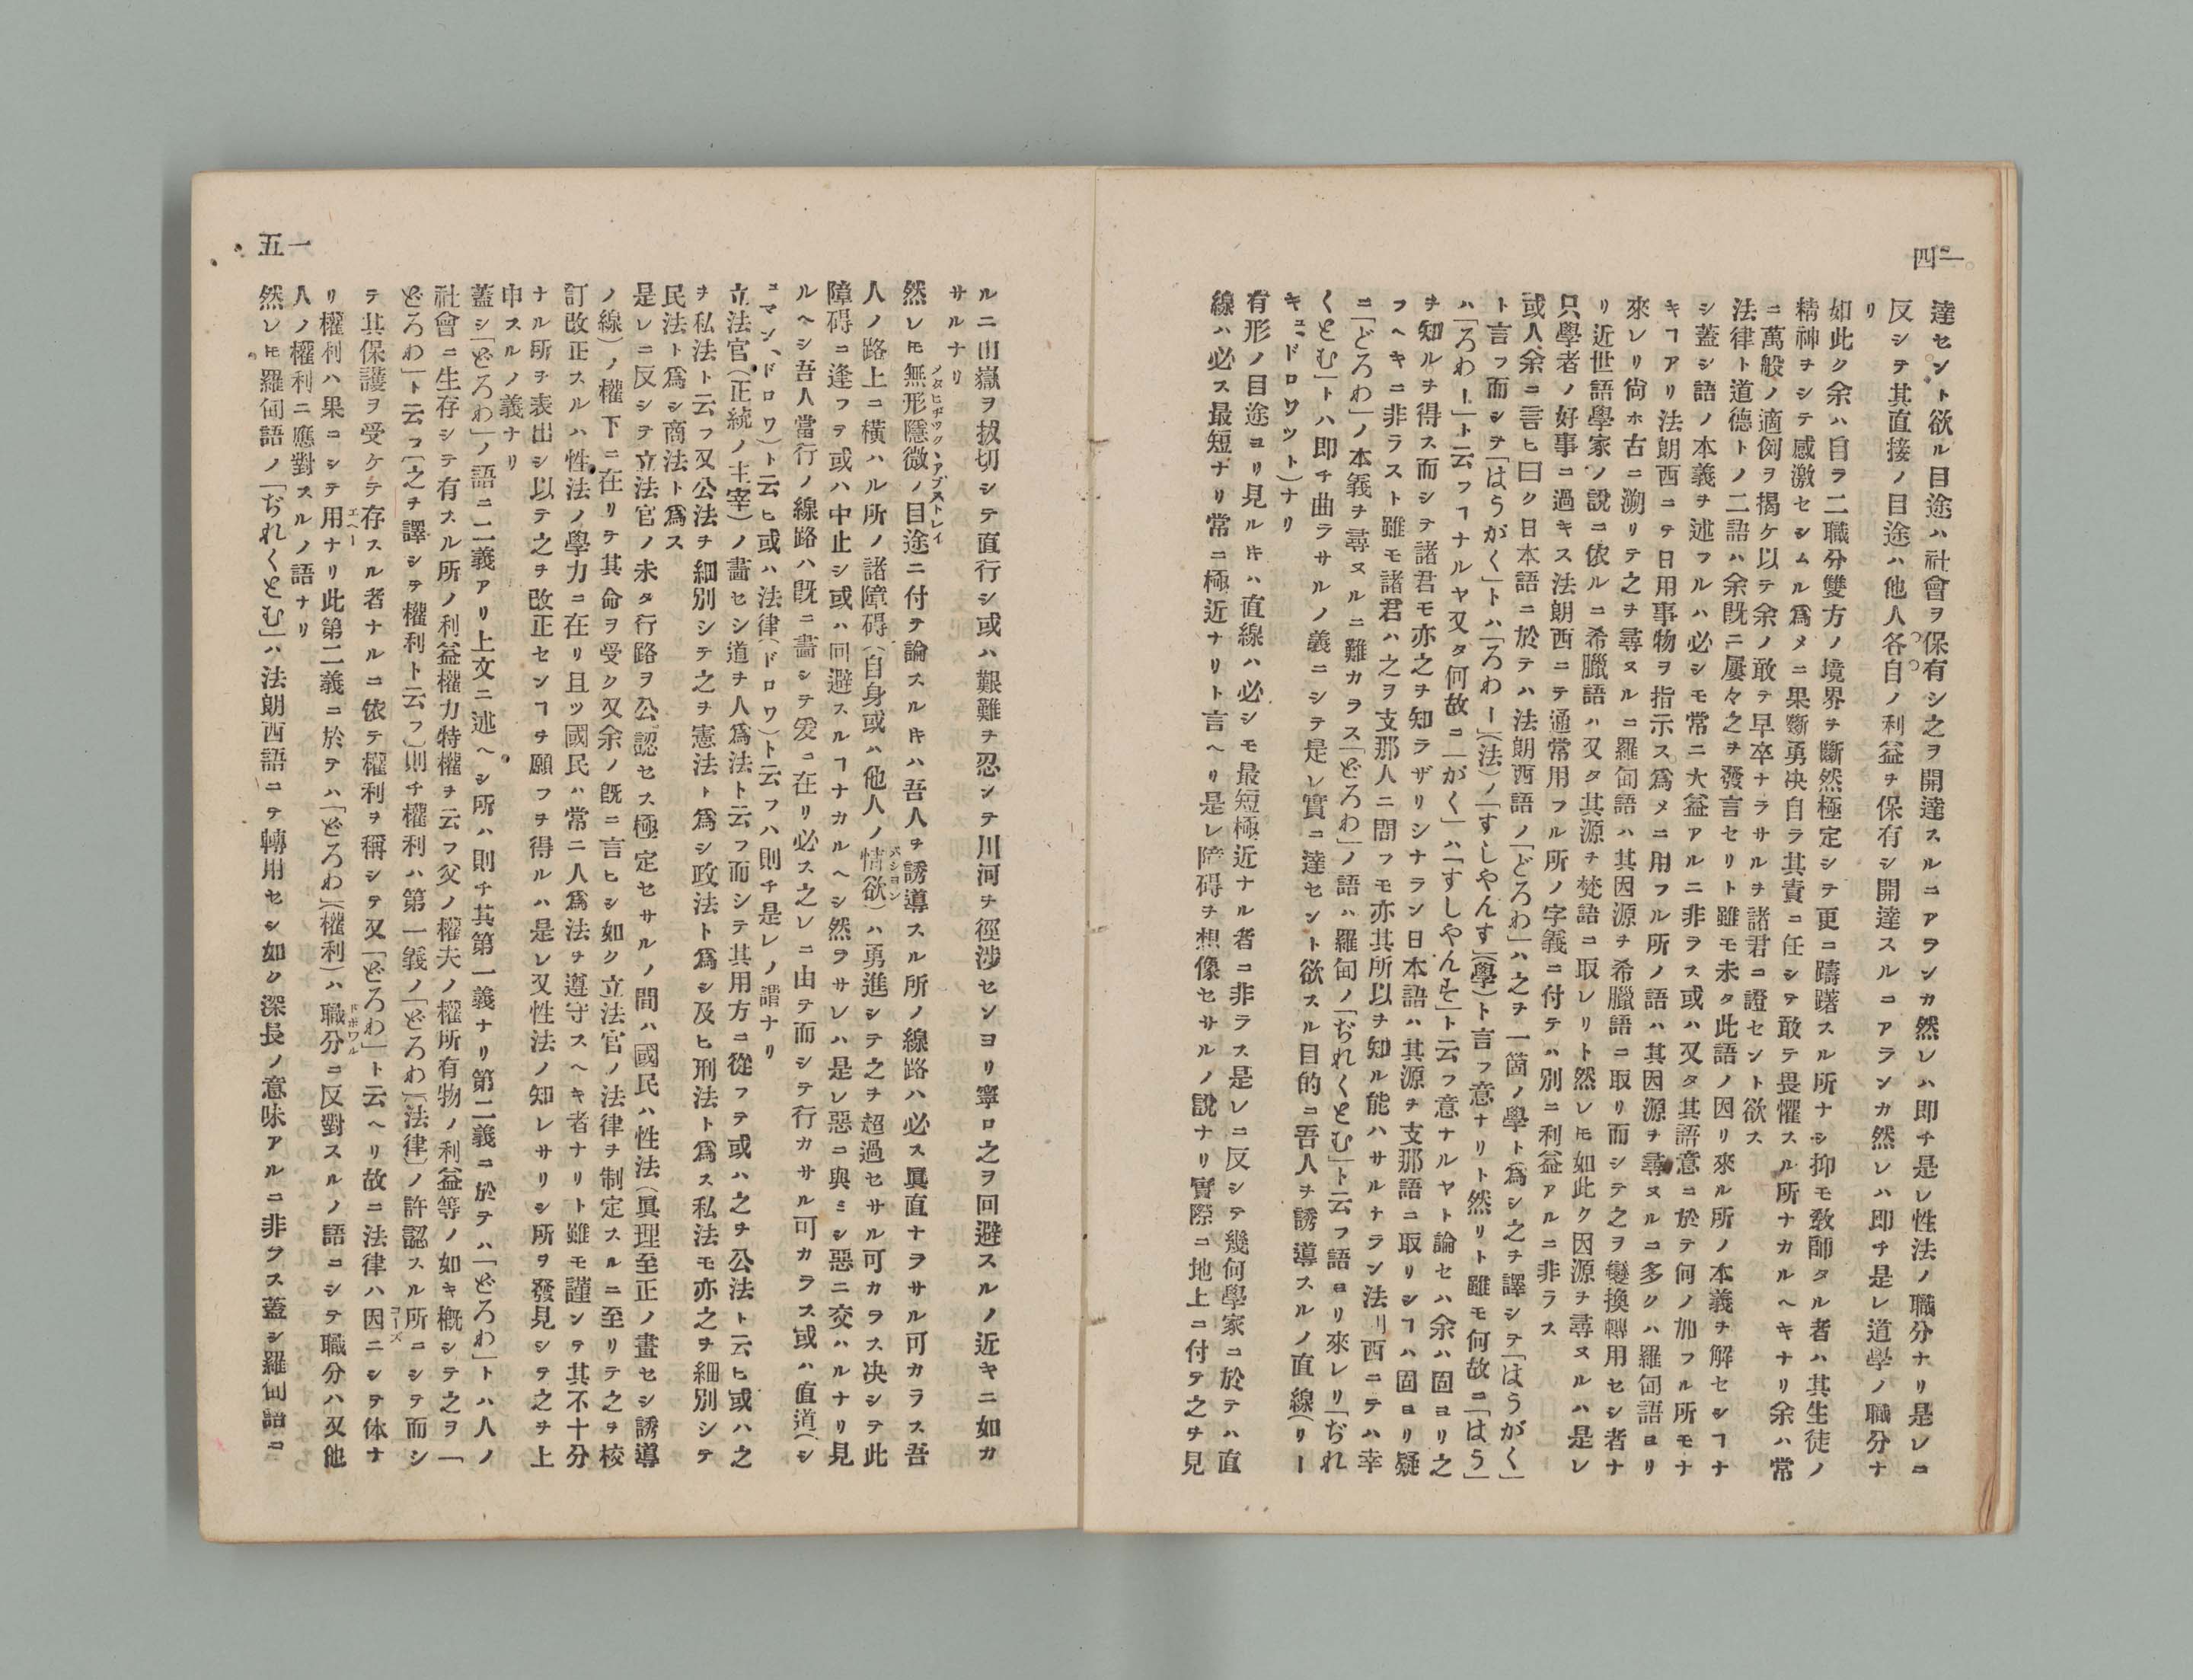 一四
達セント欲ル目途ハ社會ヲ保有シ之ヲ開達スルコアランカ然レハ即チ是レ性法ノ職分ナリ是レニ
反シテ其直接ノ目途ハ他人各自ノ利益ヲ保有シ開達スルコアランカ然レハ即チ是レ道學ノ職分ナ
リ
如此ク余ハ自ラ二職分雙方ノ境界ヲ斷然極定シテ更ニ躊躇スル所ナシ抑モ敎師タル者ハ其生徒ノ
精神ヲシテ感激セシムル爲メニ果斷勇决自ラ其責ニ任シテ敢テ畏懼スル所ナカルヘキナリ余ハ常
ニ萬般ノ適例ヲ揭ケ以テ余ノ敢テ早卒ナラサルヲ諸君ニ證セント欲ス
法律ト道德トノ二語ハ余既ニ屢々之ヲ發言セリト雖モ未タ此語ノ因リ來ル所ノ本義ヲ解セシヿナ
シ蓋シ語ノ本義ヲ述フルハ必シモ常ニ大益アルニ非ラス或ハ又タ其語意ニ於テ何ノ加フル所モナ
キヿアリ法朗西ニテ日用事物ヲ指示ス爲メニ用フル所ノ語ハ其因源ヲ尋ヌルコ多クハ羅甸語ヨリ
來レリ尙ホ古ニ溯リテ之ヲ尋ヌルニ羅甸語ハ其因源ヲ希臘語ニ取リ而シテ之ヲ變換轉用セシ者ナ
リ近世語學家ノ說ニ依ルニ希臘語ハ又タ其源ヲ梵語ニ取レリト然レ𪜈如此ク因源ヲ尋ヌルハ是レ
只學者ノ好事ニ過キス法朗西ニテ通常用フル所ノ字義ニ付テハ別ニ利益アルニ非ラス
或人余ニ言ヒ曰ク日本語ニ於テハ法朗西語ノ「どろわ」ハ之ヲ一箇ノ學ト爲シ之ヲ譯シテ「はうがく」
ト言フ而シテ「はうがく」トハ「ろわー」(法)ノ「すしやんす」(學)ト言フ意ナリト然リト雖モ何故ニ「はう」
ハ「ろわー」ト云フヿナルヤ又タ何故ニ「がく」ハ「すしやんす」ト云フ意ナルヤト論セハ余ハ固ヨリ之
ヲ知ルヲ得ス而シテ諸君モ亦之ヲ知ラザリシナラン日本語ハ其源ヲ支那語ニ取リシヿハ固ヨリ疑
フヘキニ非ラスト雖モ諸君ハ之ヲ支那人ニ問フモ亦其所以ヲ知ル能ハサルナラン法リ西ニテハ幸
ニ「どろわ」ノ本義ヲ尋ヌルニ難カラス「どろわ」ノ語ハ羅甸ノ「ぢれくとむ」ト云フ語ヨリ來レリ「ぢれ
くとむ」トハ即チ曲ラサルノ義ニシテ是レ實ニ達セント欲スル目的ニ吾人ヲ誘導スルノ直線(リー
キュ、ドロワット)ナリ
有形ノ目途ヨリ見ル𪜈ハ直線ハ必シモ最短極近ナル者ニ非ラス是レニ反シテ幾何學家ニ於テハ直
線ハ必ス最短ナリ常ニ極近ナリト言ヘリ是レ障碍ヲ想像セサルノ說ナリ實際ニ地上ニ付テ之ヲ見
一五
ルニ山嶽ヲ拔切シテ直行シ或ハ艱難ヲ忍ンテ川河ヲ徑涉センヨリ寧ロ之ヲ回避スルノ近キニ如カ
サルナリ
然レ𪜈無形隱微ノ目途ニ付テ論スル𪜈ハ吾人ヲ誘導スル所ノ線路ハ必ス眞直ナラサル可カラス吾
人ノ路上ニ橫ハル所ノ諸障碍(自身或ハ他人ノ情欲)ハ勇進シテ之ヲ超過セサル可カラス决シテ此
障碍ニ逢フテ或ハ中止シ或ハ回避スルヿナカルヘシ然ラサレハ是レ惡ニ與ミシ惡ニ交ハルナリ見
ルヘシ吾人當行ノ線路ハ既ニ畵シテ爰ニ在リ必ス之レニ由テ而シテ行カサル可カラス或ハ直道(シ
ヱマン、ドロワ)ト云ヒ或ハ法律(ドロワ)ト云フハ則チ是レノ謂ナリ
立法官(正統ノ主宰)ノ畵セシ道ヲ人爲法ト云フ而シテ其用方ニ從フテ或ハ之ヲ公法ト云ヒ或ハ之
ヲ私法ト云フ又公法ヲ細別シテ之ヲ憲法ト爲シ政法ト爲シ及ヒ刑法ト爲ス私法モ亦之ヲ細別シテ
民法ト爲シ商法ト爲ス
是レニ反シテ立法官ノ未タ行路ヲ公認セス極定セサルノ間ハ國民ハ性法(眞理至正ノ畫セシ誘導
ノ線)ノ權下ニ在リテ其命ヲ受ク又余ノ既ニ言ヒシ如ク立法官ノ法律ヲ制定スルニ至リテ之ヲ校
訂改正スルハ性法ノ學力ニ在リ且ツ國民ハ常ニ人爲法ヲ遵守スヘキ者ナリト雖モ謹ンテ其不十分
ナル所ヲ表出シ以テ之ヲ改正センヿヲ願フヲ得ルハ是レ又性法ノ知レサリシ所ヲ發見シテ之ヲ上
申スルノ義ナリ
蓋シ「どろわ」ノ語ニ二義アリ上文ニ述ヘシ所ハ則チ其第一義ナリ第二義ニ於テハ「どろわ」トハ人ノ
社會ニ生存シテ有スル所ノ利益權力特權ヲ云フ父ノ權夫ノ權所有物ノ利益等ノ如キ概シテ之ヲ「
どろわ」ト云フ(之ヲ譯シテ權利ト云フ)則チ權利ハ第一義ノ「どろわ」(法律)ノ許認スル所ニシテ而シ
テ其保護ヲ受ケテ存スル者ナルニ依テ權利ヲ稱シテ又「どろわ」ト云ヘリ故ニ法律ハ因ニシテ体ナ
リ權利ハ果ニシテ用ナリ此第二義ニ於テハ「どろわ」(權利)ハ職分ニ反對スルノ語ニシテ職分ハ又他
人ノ權利ニ應對スルノ語ナリ
然レ𪜈羅甸語ノ「ぢれくとむ」ハ法朗西語ニテ轉用セシ如ク深長ノ意味アルニ非ラス蓋シ羅甸語ニ